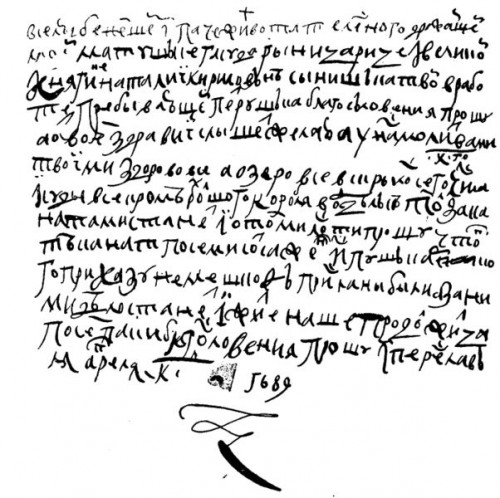 вселюбезнешеи i паче живота телесного дражаишеи
моеи матушке гасударыни царице i великои
княгине наталии кириловне сынишка твои в рабо
те пребывающеи петрушка благословения прошу
а о твоем здравии слышеть желаю а у нас молитвами
твоiми здорово все а озеро все вскрылось сего к г чис
i суды все кроме болшого корабля в отделке толко за кана
натами станет i о том милости прошу чтоб
те канаты по семисот сажен iс пушкарско
го приказу не мешкоф присланы были а за ни
ми дела станет i житие наше продолжица
по сем паки благословения прошу iс переславля
апреля к 1689